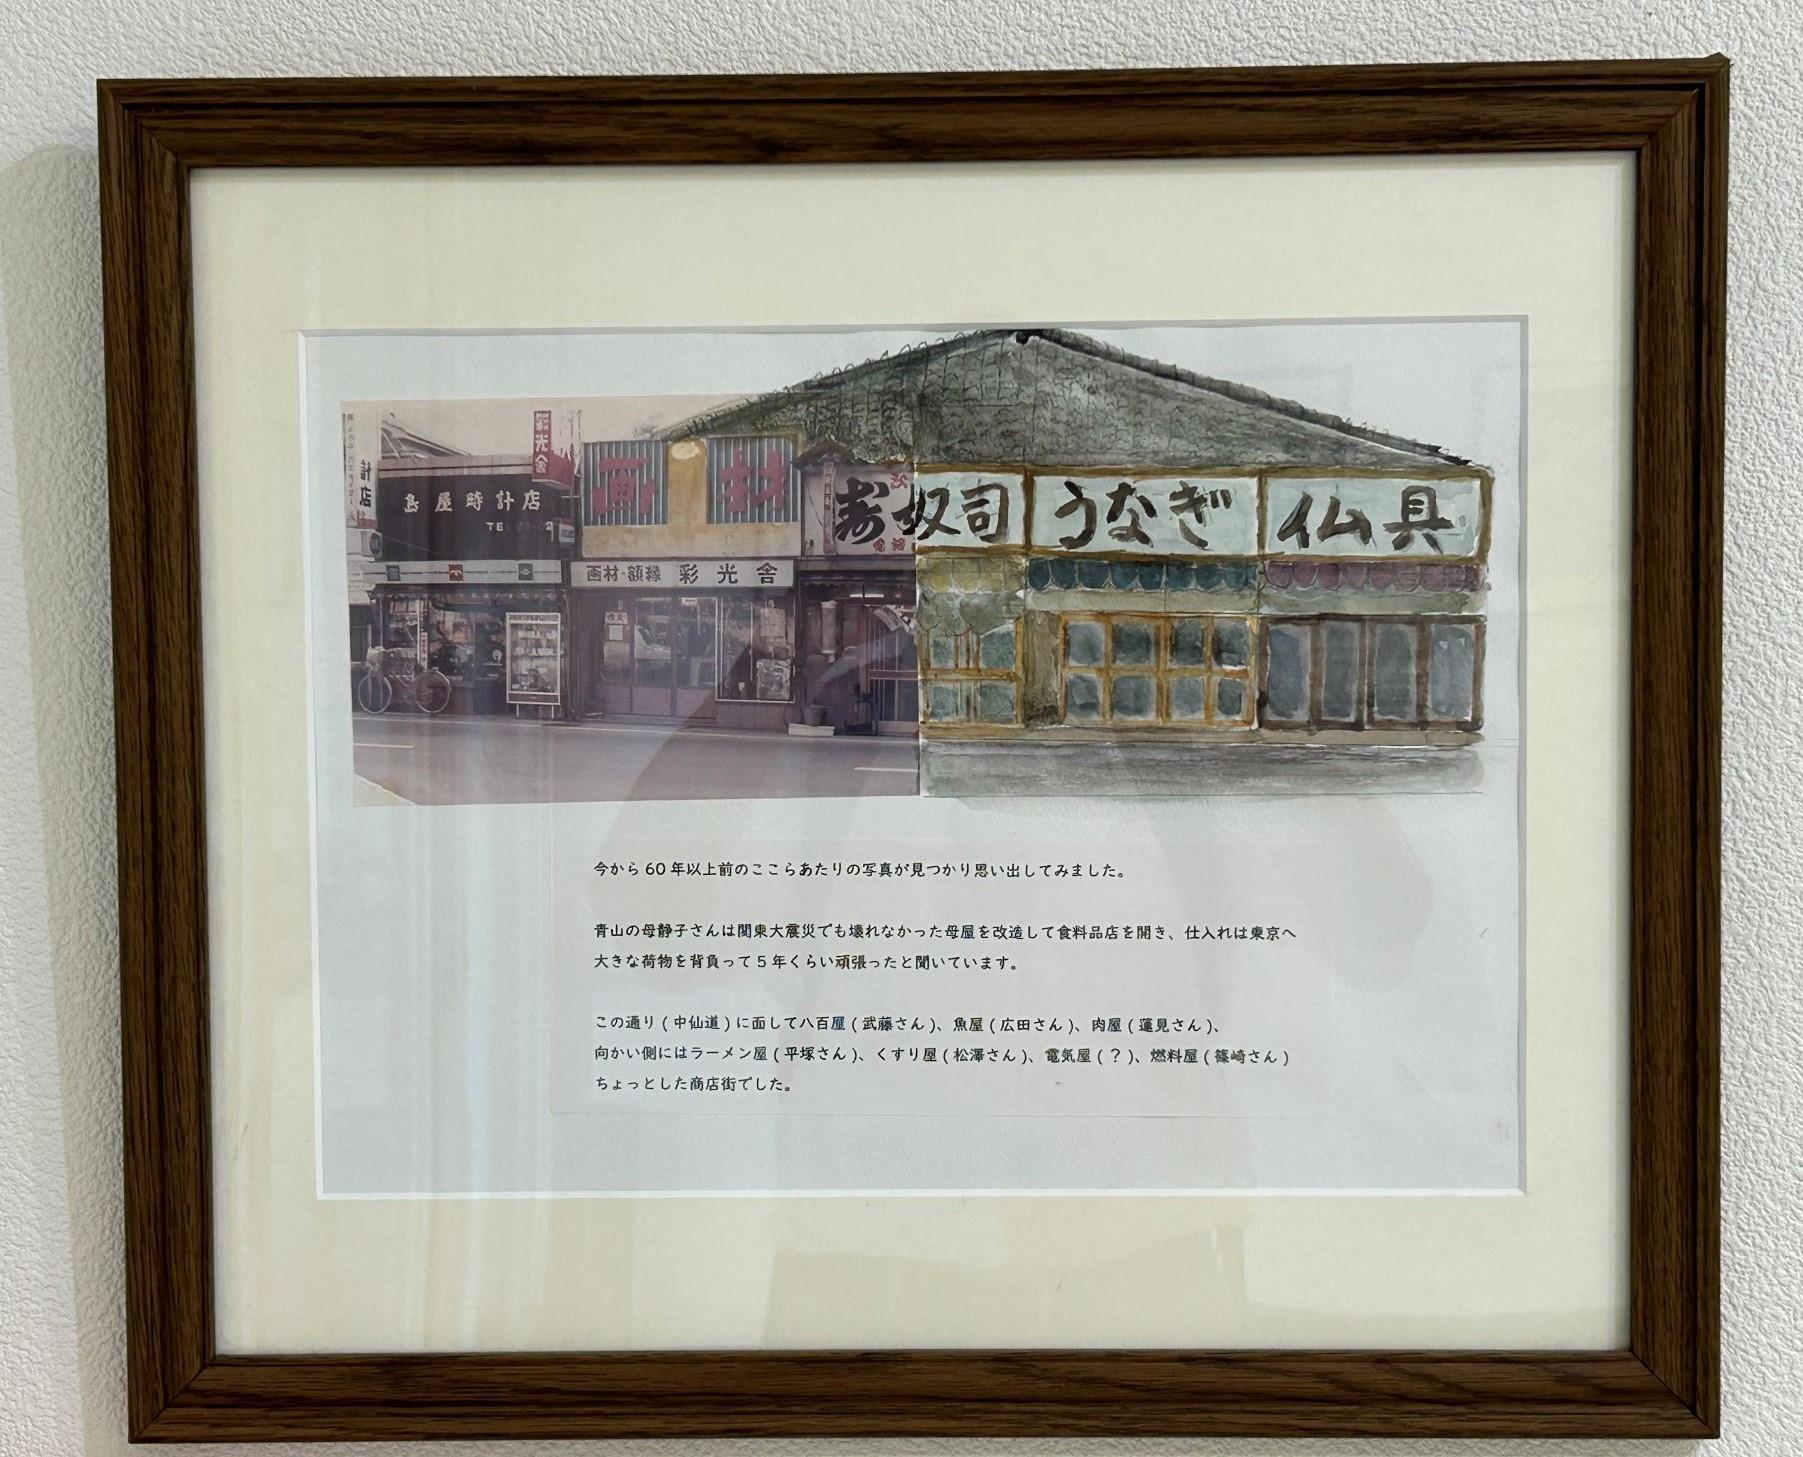 彩光舎
島屋時計店
画材
寿奴司
うなぎ
仏具
画材・額縁 彩光舎
今から60年以上前のここらあたりの写真が見つかり思い出してみました。
青山の母静子さんは関東大震災でも壊れなかった母屋を改造して食料品店を開き、仕入れは東京へ
大きな荷物を背負って5年くらい頑張ったと聞いています。
この通り(中仙道)に面して八百屋(武藤さん)、魚屋(広田さん)、肉屋(蓮見さん)、
向かい側にはラーメン屋(平塚さん)、くすり屋(松澤さん)、電気屋(?)、燃料屋(篠崎さん)
ちょっとした商店街でした。